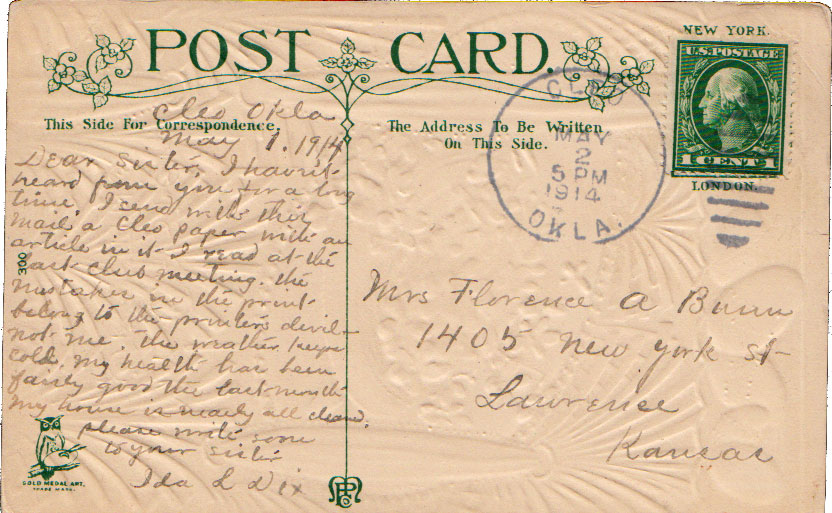 POST CARD.
NEW YORK.
U.S. POSTAGE
1 CENT 1
LONDON.
This Side For Correspondence.
The Address To Be Written
On This Side.
CLEO
MAY
2
5 PM
1914
OKLA.
Cleo Okla
May 1. 1914
Dear Sister, I havn't
heard from you for a long
time, I send with this
mail a Cleo paper with an
article in it I read at the
last club meeting. the
mistakes in the print
belong to the printers devil -
not me. the weather keeps
cold. my health has been
fairly good the last month
My house is nearly all cleaned.
please write soon
to your sister
Ida L Dix
300
GOLD MEDAL ART.
TRADE MARK.
Mrs Florence A Bunn
1405 New York St
Lawrence
Kansas